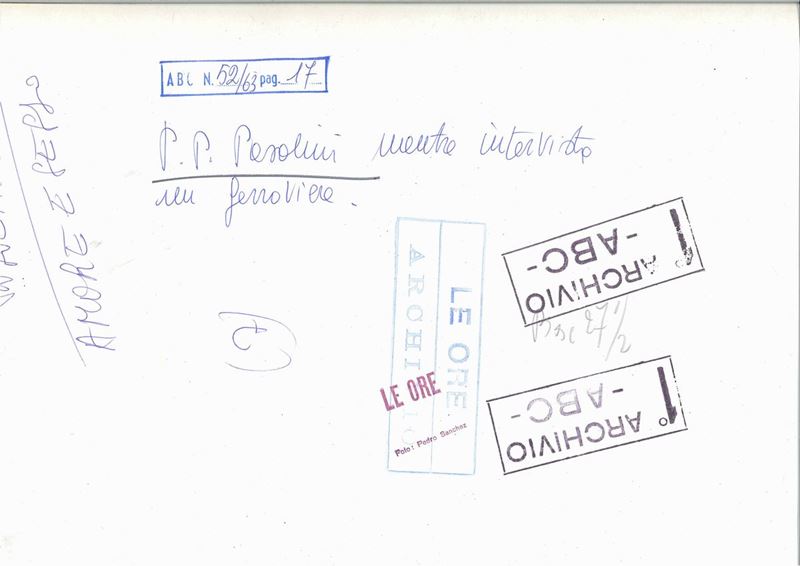 ABC N. 52/63 pag. 17
P.P. Pasolini mentre intervista
un ferroviere.
AMORE E
LE ORE
ARCHIVIO
LE ORE
Foto: Pedro Sanchez
1° ARCHIVIO
-ABC-
Base 27 1/2
1° ARCHIVIO
-ABC-